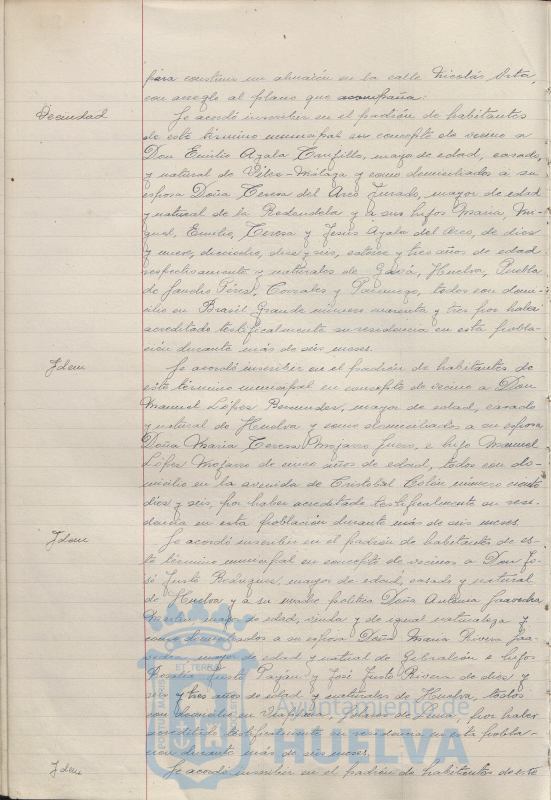 para construir un almacén en la calle Nicolás Orta,
con arreglo al plano que acompaña.
Vecindad
Se acordó inscribir en el padrón de habitantes
de este término municipal en concepto de vecino a
Don Emilio Ayala Trujillo, mayor de edad, casado
y natural de Vélez-Málaga y como domiciliados a su
esposa Doña Teresa del Arco Jurado, mayor de edad
y natural de la Redondela y a sus hijos Maria, Mi-
guel, Emilio, Teresa y Jesús Ayala del Arco, de diez
y nueve, dieciocho, diez y seis, catorce y tres años de edad
respectivamente y naturales de Huelva, Puebla
de Corrales y Paymogo, todos con domi-
cilio en Brasil Grande número cuarenta y tres por haber
acreditado testificalmente su residencia en esta pobla-
ción durante más de seis meses.
Idem
Se acordó inscribir en el padrón de habitantes de
este término municipal en concepto de vecino a Don
Manuel López Bermudez, mayor de edad, casado
y natural de Huelva y como domiciliados a su esposa
Doña Maria Teresa Mojarro e hijo Manuel
López Mojarro de nueve años de edad, todos con do-
micilio en la avenida de Cristóbal Colón número ciento
diez y seis, por haber acreditado testificalmente su resi-
dencia en esta población durante más de seis meses
Idem
Se acordó inscribir en el padrón de habitantes de es-
te término municipal en concepto de vecinos a Don Jo-
sé Justo Rodríguez, mayor de edad, casado y natural
de Huelva y a su madre política Doña Antonia Saavedra
mayor de edad, viuda y de igual naturaleza y
como domiciliados a su esposa Doña Maria Rivera Saa-
vedra, mayor de edad y natural de Gibraleón e hijos
Rosalia Justo y José Justo Rivera de diez y
seis y tres años de edad y naturales de Huelva, todos
con domicilio en Viaplana, por haber
acreditado testificalmente su residencia en esta pobla-
ción durante más de seis meses.
Idem
Se acordó inscribir en el padrón de habitantes de este
Ayuntamiento de
HUELVA